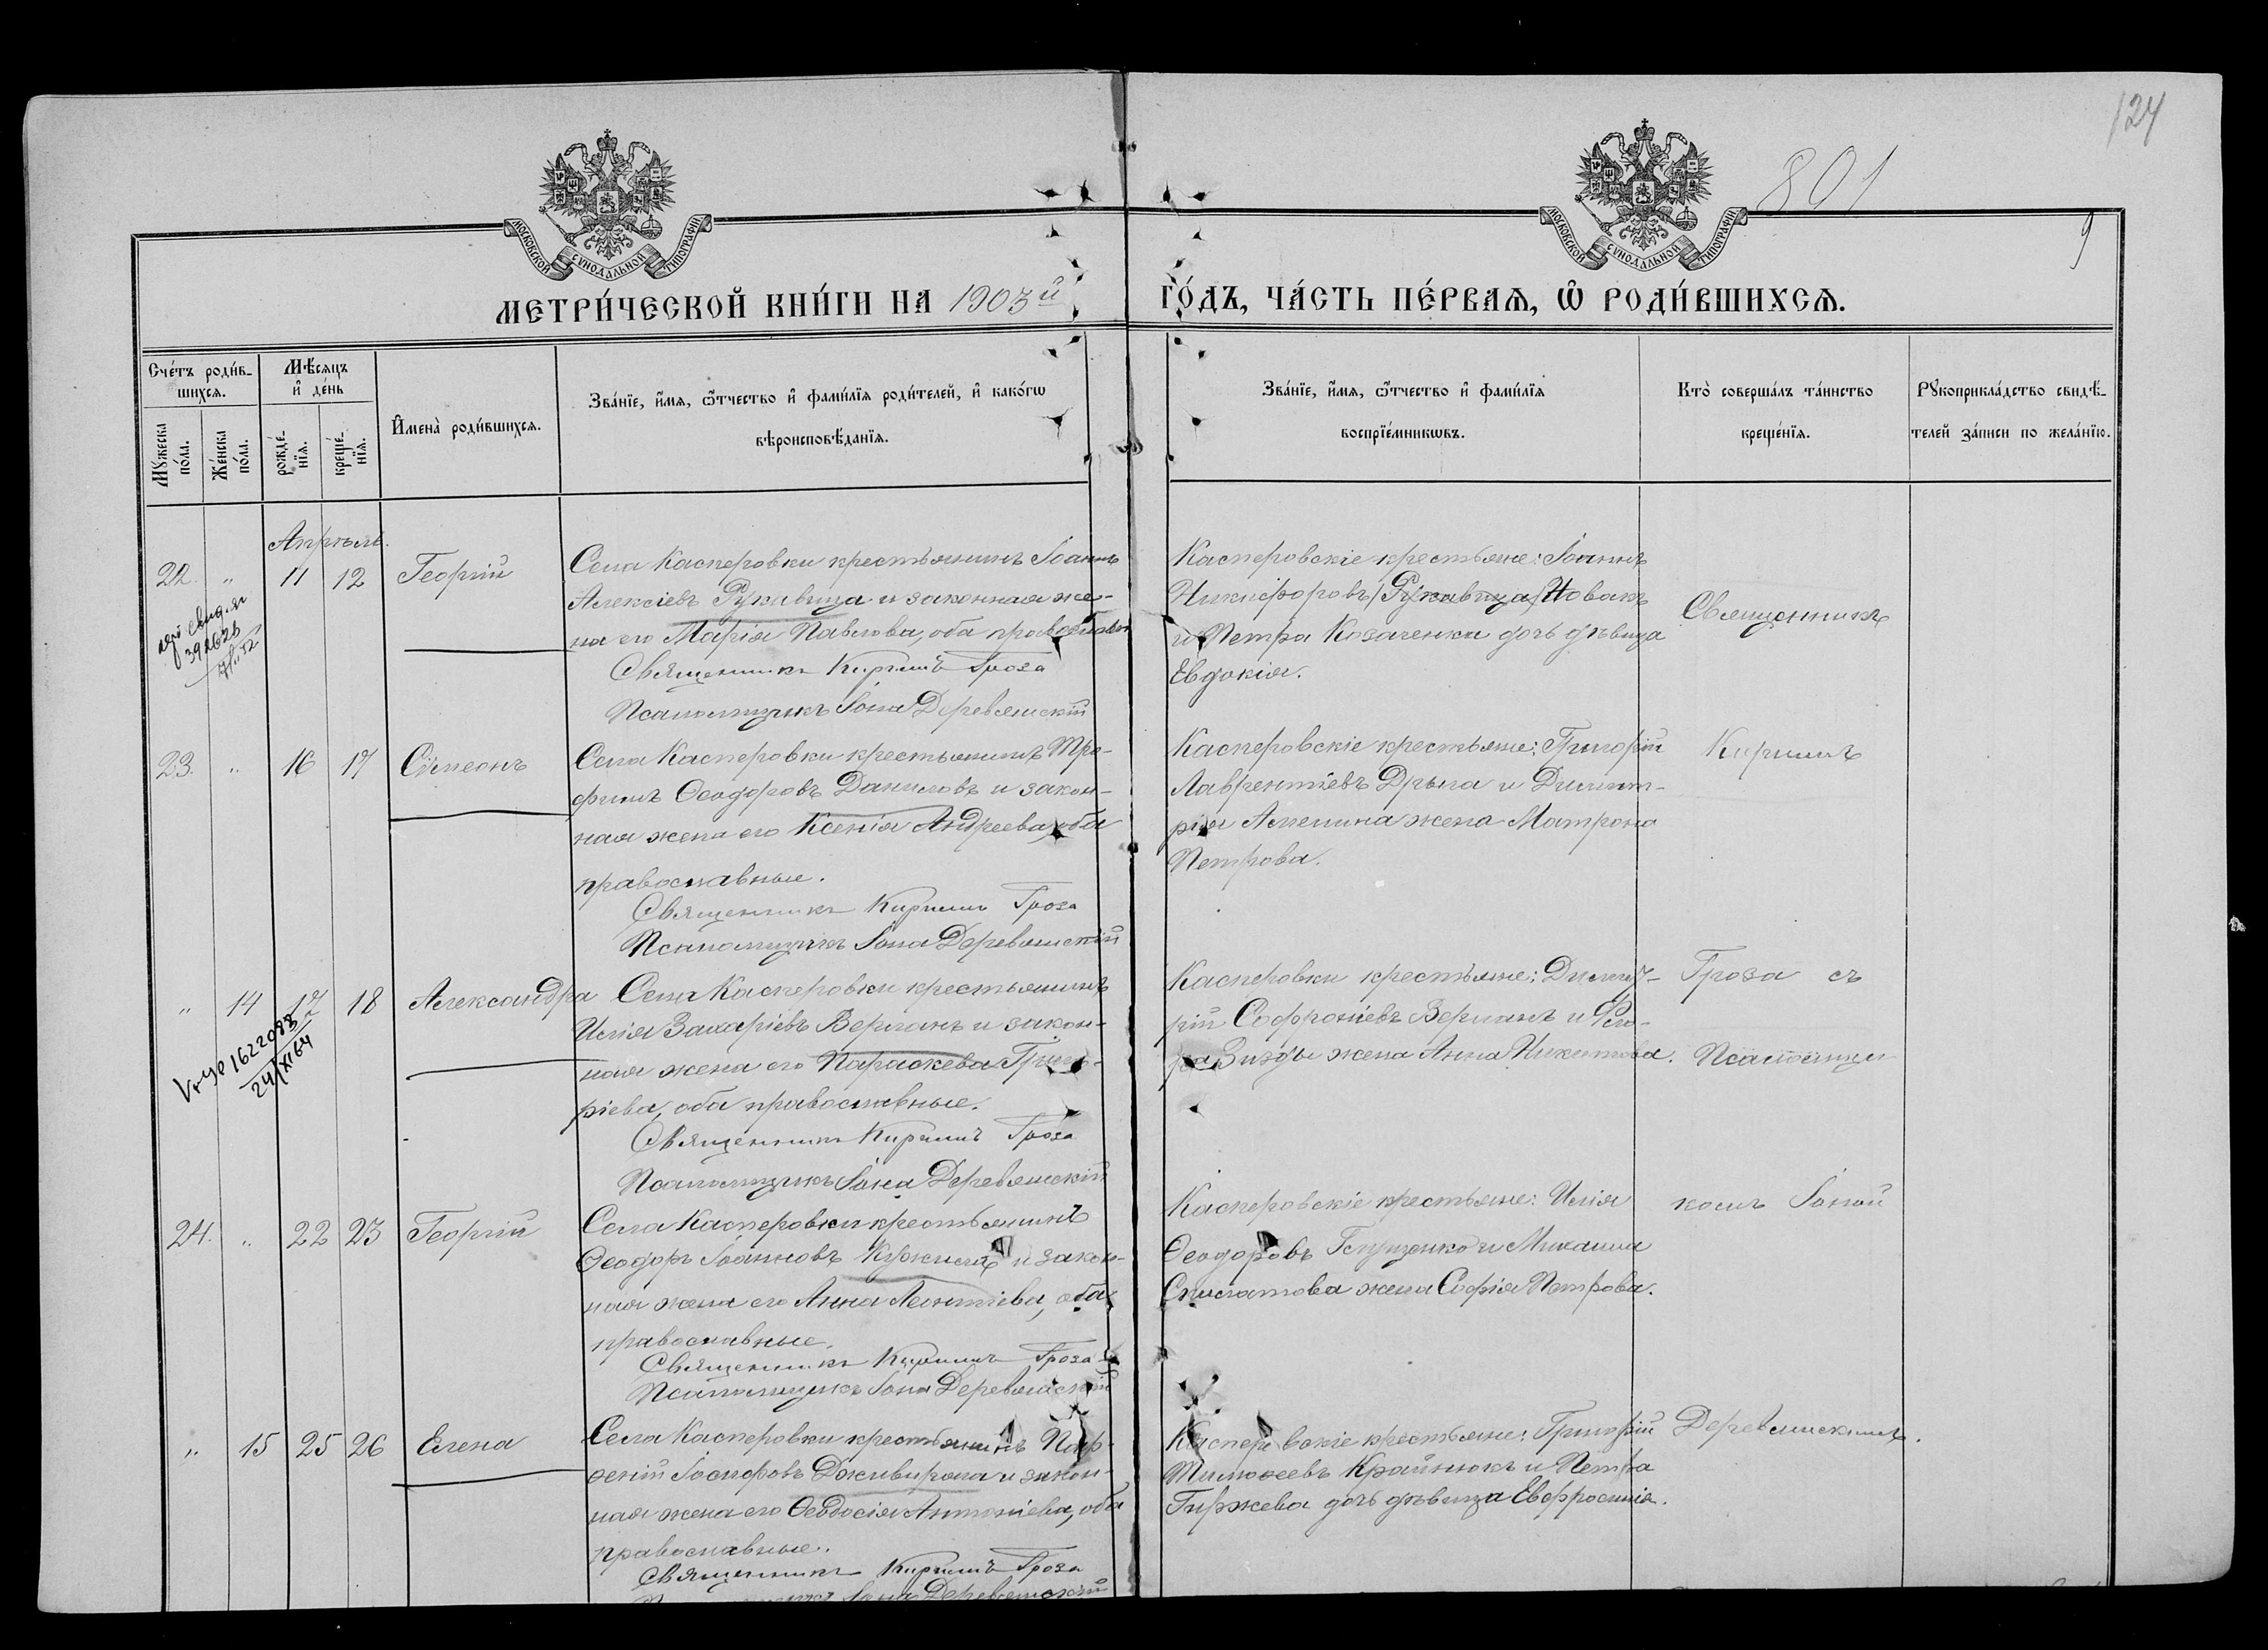 124
801
9
МОСКОВСКОЙ СѴНОДАЛЬНОЙ ТИПОГРАФІИ
МОСКОВСКОЙ СѴНОДАЛЬНОЙ ТИПОГРАФІИ
МЕТРИ́ЧЕСКОЙ КНИ́ГИ НА 1903й ГО́ДЪ, ЧА́СТЬ ПЕ́РВАѦ, Ѡ҆ РОДИ́ВШИХСѦ.
Сче́тъ роди́в-
шихсѧ.
Мѣ́сѧцъ
и҆ де́нь
Мꙋ́жеска
по́ла.
Же́нска
по́ла.
рожде́-
нїѧ.
креще́-
нїѧ.
И҆мена̀ роди́вшихсѧ.
Зва́нїе, и҆́мѧ, ѻ҆́тчество и҆ фамі́лїѧ роди́телей, и҆ како́гѡ
вѣроисповѣ́данїѧ.
Зва́нїе, и҆́мѧ, ѻ҆́тчество и҆ фамі́лїѧ
воспрїе́мникѡвъ.
Кто̀ соверша́лъ та́инство
креще́нїѧ.
Рꙋкоприкла́дство свидѣ́-
телей за́писи по жела́нїю.
Апрѣль.
22. " 11 12 Георгій
Села Касперовки крестьянинъ Іоаннъ
Алексіевъ Рукавица и законная же-
на его Марія Павлова, оба православн
Священникъ Кириллъ Гроза
Псаломщикъ Іона Деревянскій
Касперовскіе крестьяне: Іоаннъ
Никифоровъ /Рукавица/ Новакъ
и Петра Козаченка дочь дѣвица
Евдокія.
Священникъ
392626
23. " 16 17 Сімеонъ
Села Касперовки крестьянинъ Тро-
фимъ Ѳеодоровъ Даниловъ и закон-
ная жена его Ксенія Андреева, оба
православные.
Священникъ Кириллъ Гроза
Псаломщикъ Іона Деревянскій
Касперовскіе крестьяне: Григорій
Лаврентіевъ Дрыга и Димит-
рія жена Матрона
Петрова.
Кирилъ
" 14 17 18 Александра
Села Касперовки крестьянинъ
Илія Захаріевъ Верланъ и закон-
ная жена его Параскева Григо-
ріева, оба православные.
Священникъ Кириллъ Гроза
Псаломщикъ Іона Деревянскій
Касперовки крестьяне: Димит-
рій Софроніевъ Верланъ и Ѳео-
жена Анна Никитова.
Гроза съ
Псаломщи
1622083
24/XI 64
24. " 22 23 Георгій
Села Касперовки крестьянинъ
Ѳеодоръ Іоанновъ и закон-
ная жена его Анна Леонтіева, оба
православные.
Священникъ Кириллъ Гроза
Псаломщикъ Іона Деревянскій
Касперовскіе крестьяне: Илія
Ѳеодоровъ и Михаила
жена Софія Петрова.
комъ Іоной
" 15 25 26 Елена
Села Касперовки крестьянинъ Пар-
ѳеній Іосифовъ Дживирола и закон-
ная жена его Ѳеодосія Антоніева, оба
православные.
Священникъ Кириллъ Гроза
Іона Деревянскій
Касперовскіе крестьяне: Григорій
Тимоѳеевъ Крайнюкъ и Петра
Гиржева дочь дѣвица Евфросинія.
Деревянскимъ.